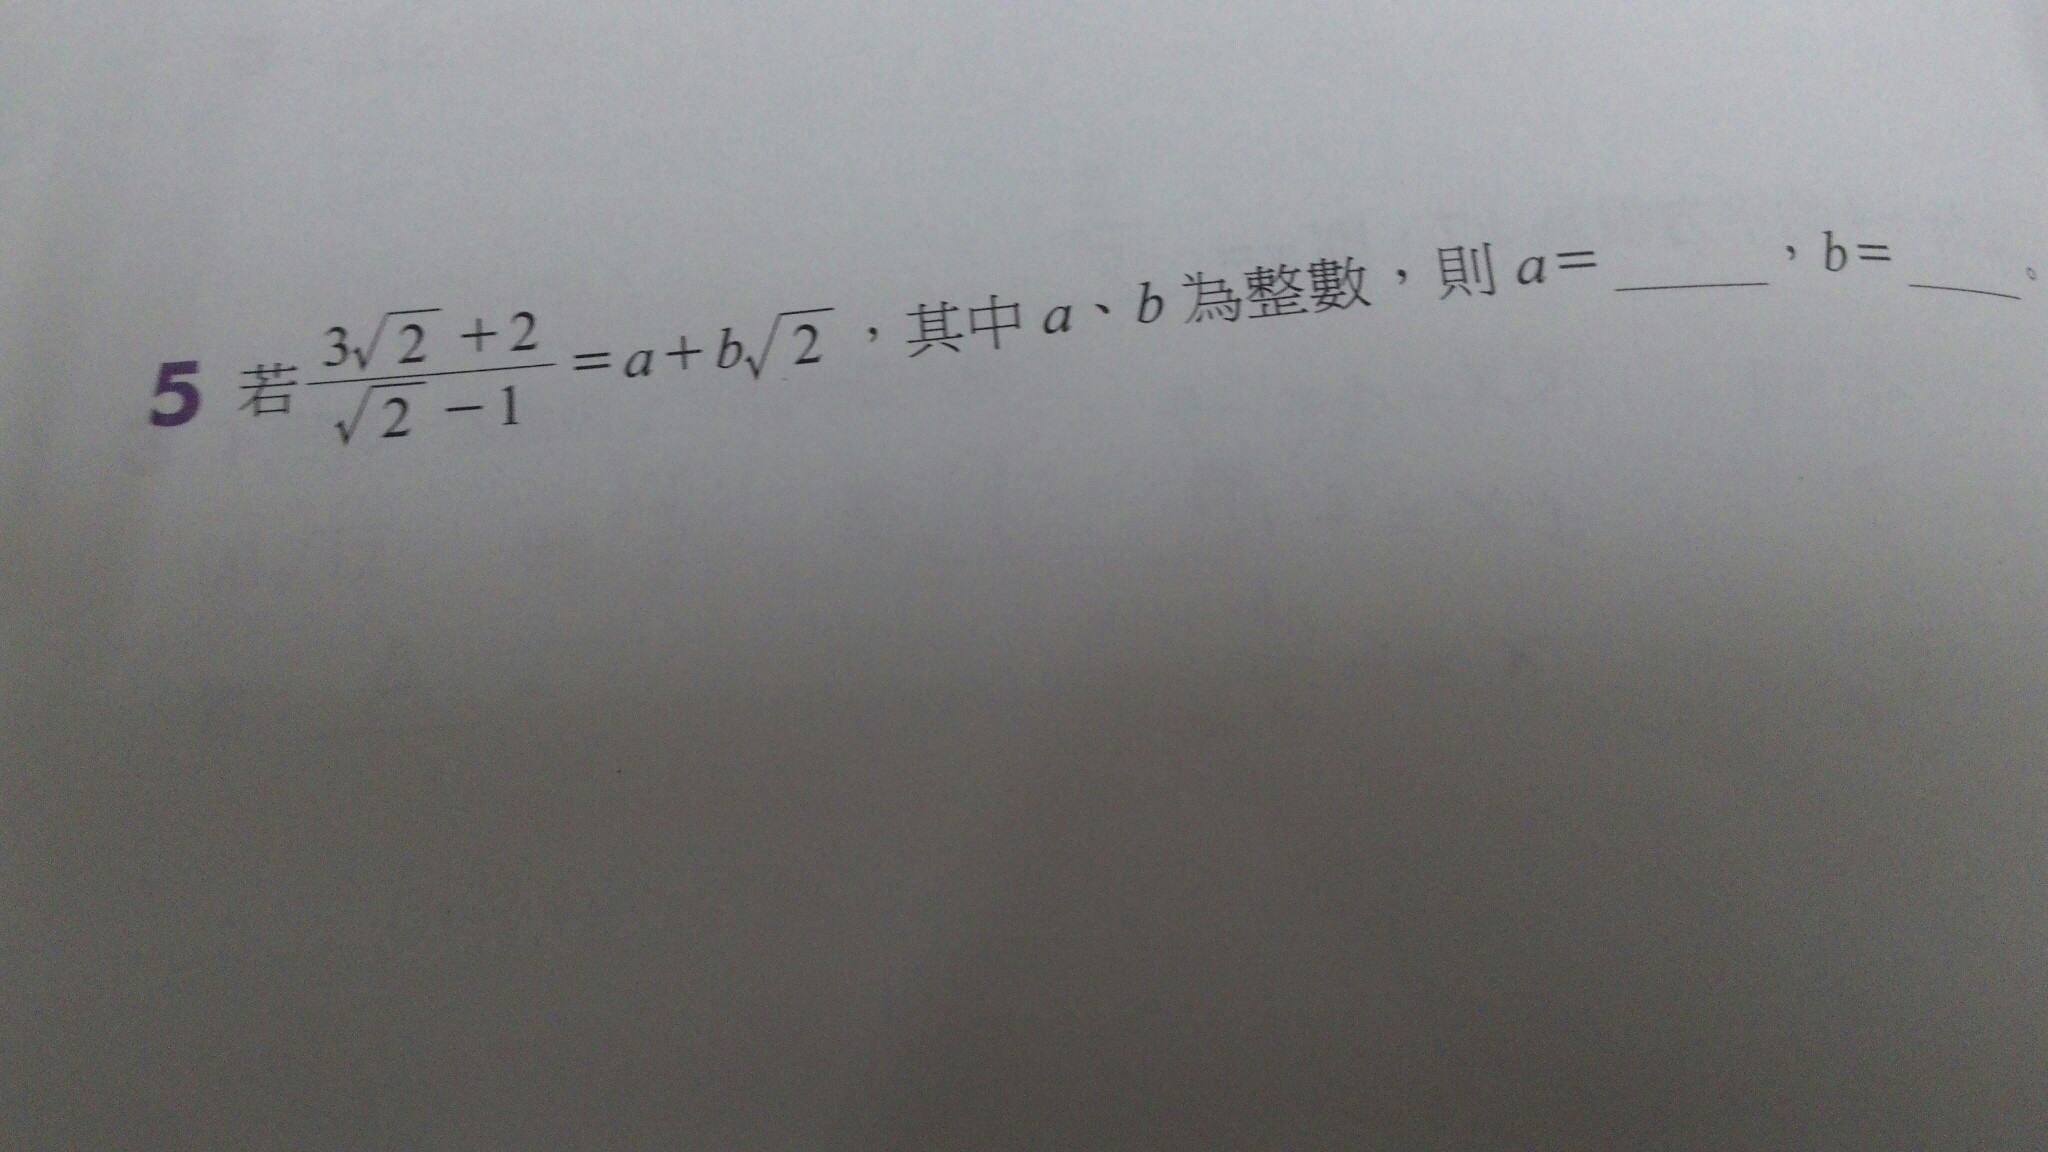 5 若 \frac{3\sqrt{2}+2}{\sqrt{2}-1}=a+b\sqrt{2}，其中 a、b 為整數，則 a=____，b=____。